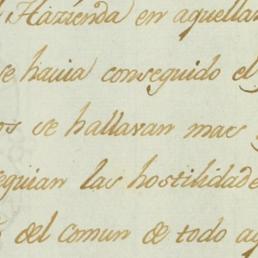 Hazienda en aquella
se hauia conseguido el
os se hallavan mas
eguian las hostilidade
del comun de todo aq